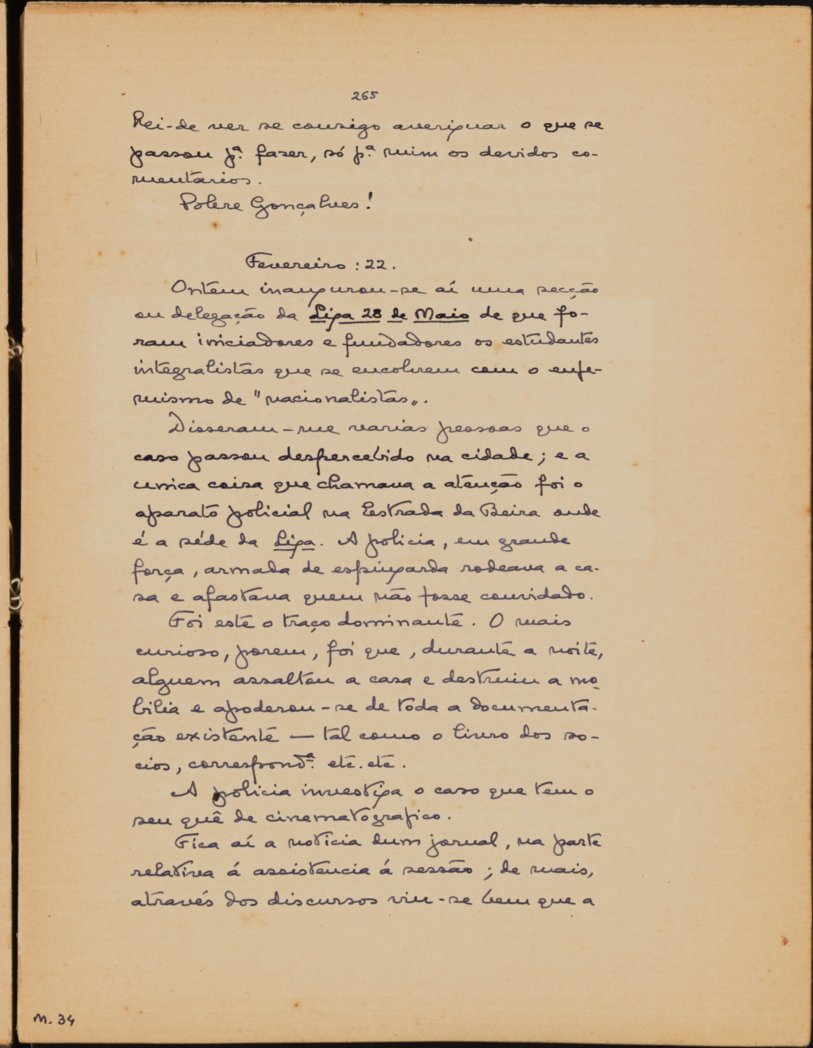 265
Hei-de ver se consigo averiguar o que se
passou pª. fazer, só pª. mim os devidos co-
mentarios.
Pobre Gonçalves!
Fevereiro: 22.
Ontem inaugurou-se aí uma secção
ou delegação da Liga 28 de Maio de que fo-
ram iniciadores e fundadores os estudantes
integralistas que se encobrem com o eufe-
mismo de "nacionalistas„.
Disseram-me varias pessoas que o
caso passou despercebido na cidade; e a
unica coisa que chamava a atenção foi o
aparato policial na Estrada da Beira onde
é a séde da Liga. A policia, em grande
força, armada de espingarda rodeava a ca-
sa e afastava quem não fosse convidado.
Foi este o traço dominante. O mais
curioso, porem, foi que, durante a noite,
alguem assaltou a casa e destruiu a mo-
bilia e apoderou-se de toda a documenta-
ção existente — tal como o livro dos so-
cios, correspondª. etc. etc.
A policia investiga o caso que tem o
seu quê de cinematografico.
Fica aí a noticia dum jornal, na parte
relativa á assistencia á sessão; de mais,
através dos discursos viu-se bem que a
M. 34